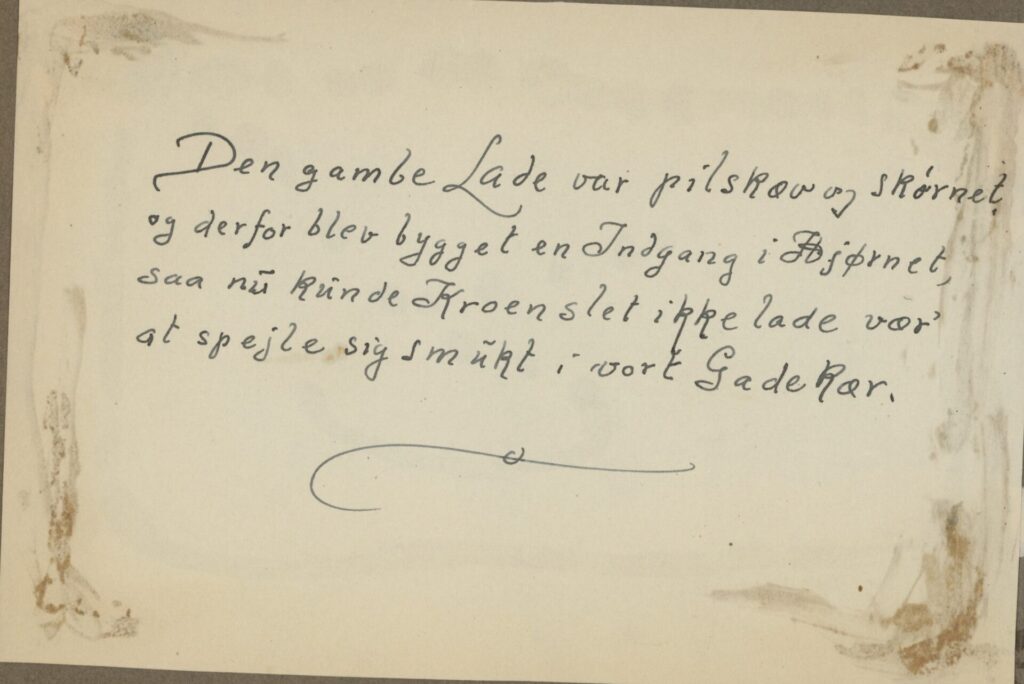 Den gamle Lade var pilskæv og skørnet
og derfor blev bygget en Indgang i Hjørnet,
saa nū kūnde Kroen slet ikke lade vær'
at spejle sig smūkt i vort Gadekær.